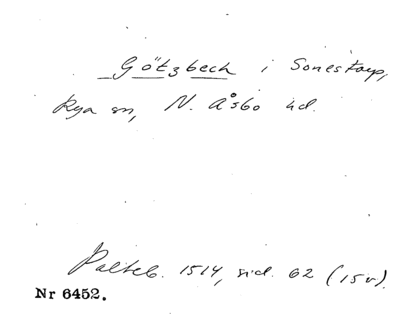 Götzbech i Sonestorp,
Rya sn, N. Åsbo hd.
Palteb. 1514, sid. 62 (15v).
Nr 6452.